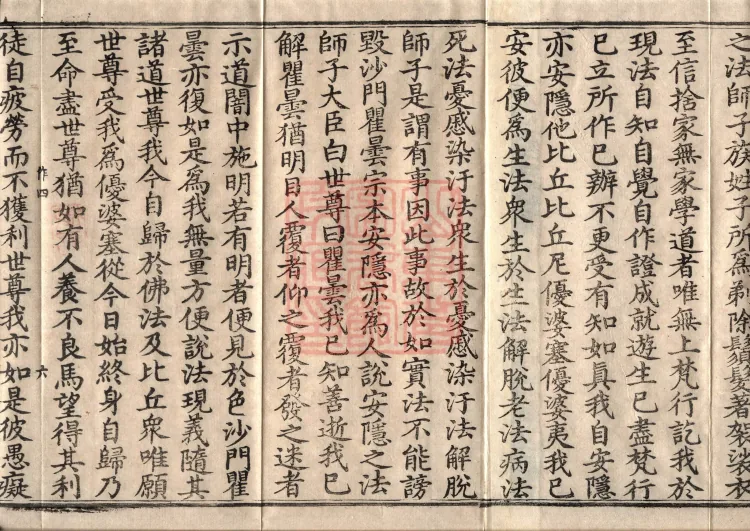 之法師子族姓子所爲剃除鬚髮著袈裟衣
至信捨家無家學道者唯無上梵行訖我於
現法自知自覺自作證成就遊生已盡梵行
已立所作已辦不更受有知如真我自安隱
亦安隱他比丘比丘尼優婆塞優婆夷我已
安彼便爲生法衆生於生法解脫老法病法
死法憂慼染汙法衆生於憂慼染汙法解脫
師子是謂有事因此事故於如實法不能謗
毀沙門瞿曇宗本安隱亦爲人說安隱之法
師子大臣白世尊曰瞿曇我已知善逝我已
解瞿曇猶明目人覆者仰之覆者發之迷者
示道闇中施明若有明者便見於色沙門瞿
曇亦復如是爲我無量方便說法現義隨其
諸道世尊我今自歸於佛法及比丘衆唯願
世尊受我爲優婆塞從今日始終身自歸乃
至命盡世尊猶如有人養不良馬望得其利
作四 六
徒自疲勞而不獲利世尊我亦如是彼愚癡